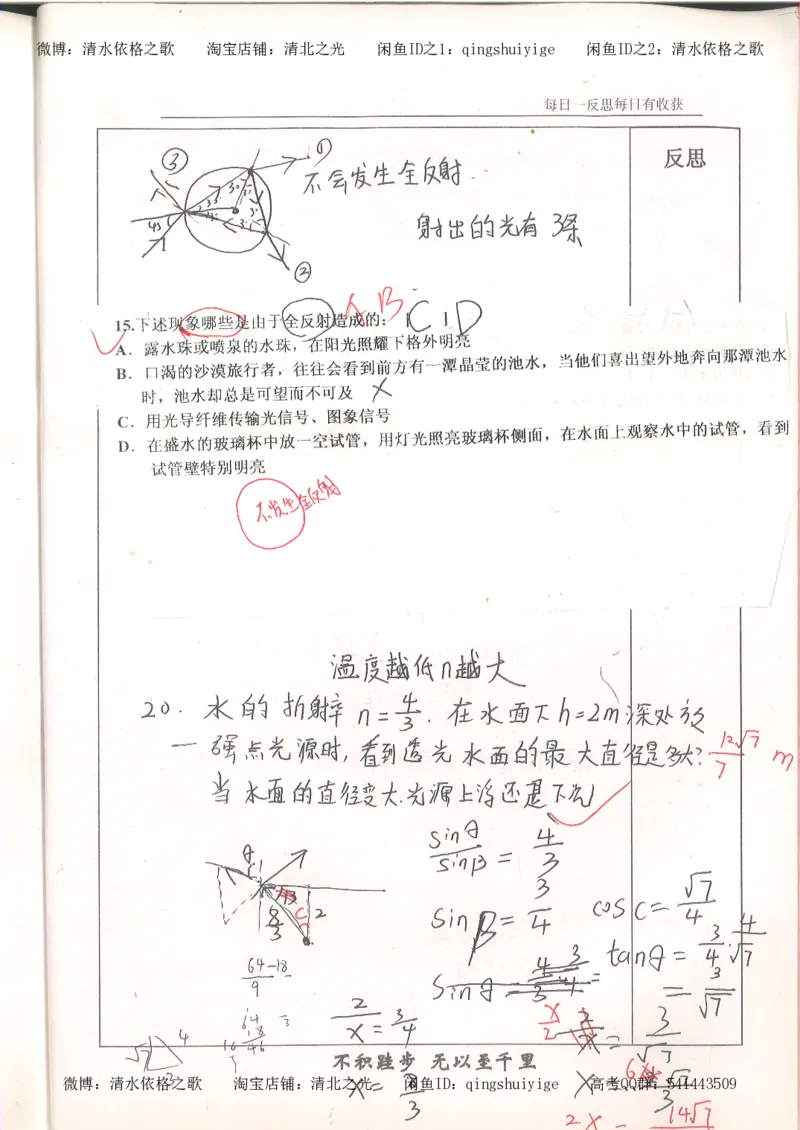 微博：清水依格之歌 淘宝店铺：清北之光 闲鱼ID之1：qingshuiyige 闲鱼ID之2：清水依格之歌
每日一反思每日有收获
反思
③
①
不会发生全反射.
射出的光有 3条
45
②
A B
C D
15.下述现象哪些是由于全反射造成的：
A. 露水珠或喷泉的水珠，在阳光照耀下格外明亮
B. 口渴的沙漠旅行者，往往会看到前方有一潭晶莹的池水，当他们喜出望外地奔向那潭池水
时，池水却总是可望而不可及 ×
C. 用光导纤维传输光信号、图象信号
D. 在盛水的玻璃杯中放一空试管，用灯光照亮玻璃杯侧面，在水面上观察水中的试管，看到
试管壁特别明亮
不发生全反射
温度越低n越大
20. 水的折射率 n=4/3. 在水面下h=2m深处放
一强点光源时,看到透光水面的最大直径是多大? 12√7/7 m
当水面的直径变大.光源上浮还是下沉
sinθ/sinβ = 4/3
sinβ = 3/4
cosC = √7/4
tanθ = 3/4 · 4/√7
= 3/√7
8/3
C
2
64-18/9
2/x = 3/4
x = 8/3
不积跬步 无以至千里
微博：清水依格之歌 淘宝店铺：清北之光 闲鱼ID：qingshuiyige 高考QQ群：541443509
2x = 14√7